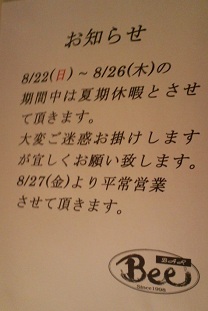 お知らせ
8/22(日)~8/26(木)の
期間中は夏期休暇とさせ
て頂きます。
大変ご迷惑お掛けします
が宜しくお願い致します。
8/27(金)より平常営業
させて頂きます。
BAR
Bee